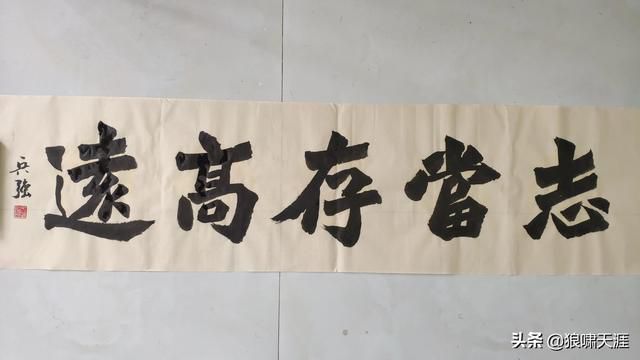 志當存髙遠
兵強
头条 @狼啸天涯